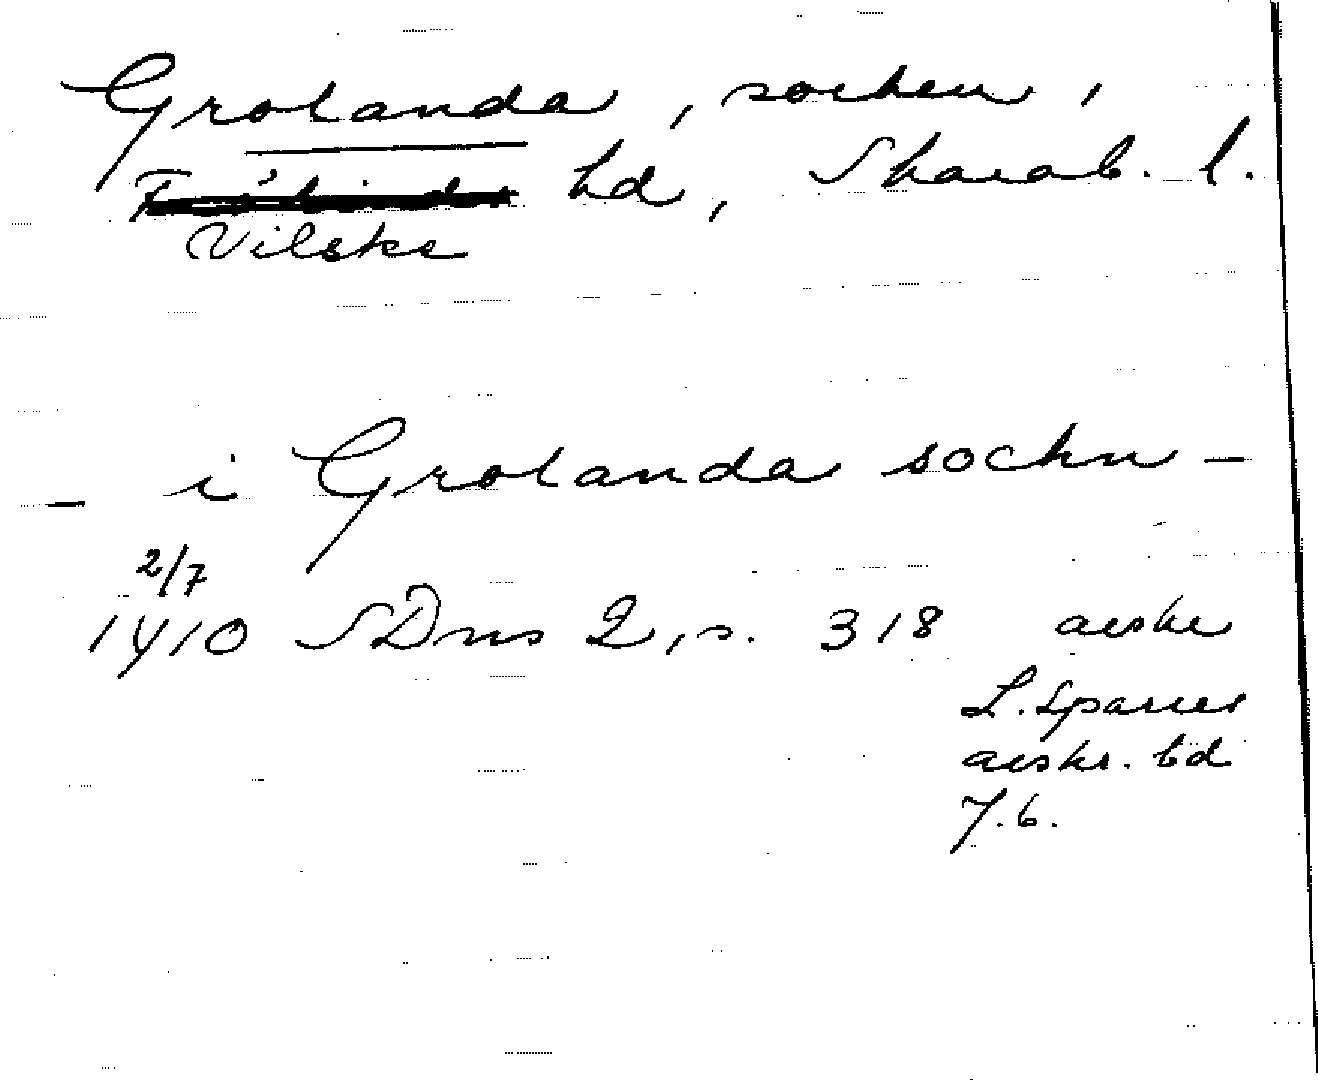 Grolanda, socken,
hd, Skarab. l.
Vilske
- i Grolanda sochn -
2/7
1410 SDns 2, s. 318 avskr
L. Sparres
avskr. bd
7.6.